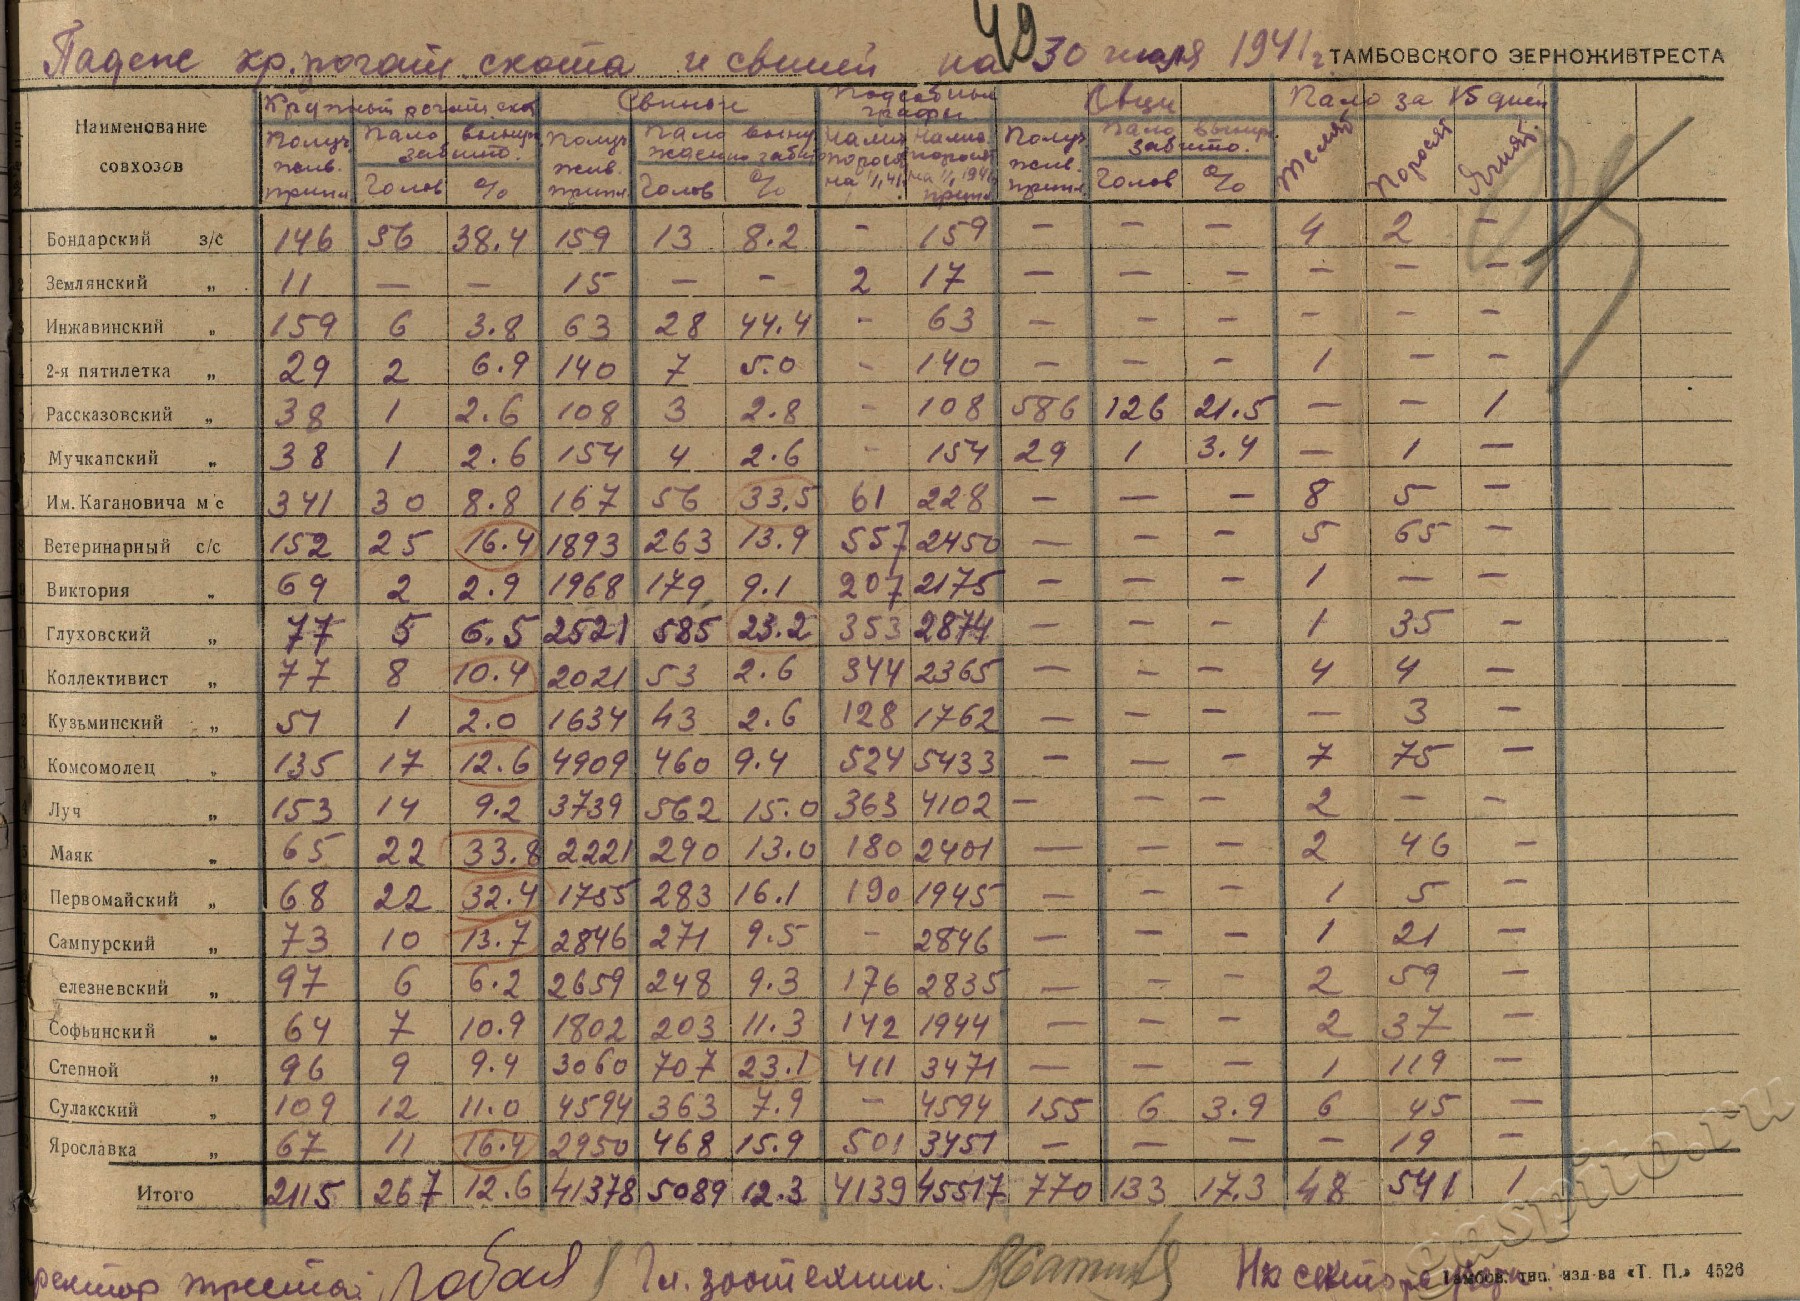 49
Падеж кр. рогат. скота и свиней на 30 июля 1941 г. ТАМБОВСКОГО ЗЕРНОЖИВТРЕСТА
Наименование совхозов | Крупный рогат. скот | Свиньи | Подсобные графы | Овцы | Пало за 15 дней
Получ. жив. припл. | Пало вынуж. забито. | Получ. жив. припл. | Пало вынужденно забит | Получ. жив. припл. | Пало вынуж. забито. | Телят | Поросят | Ягнят.
Голов | % | Голов | % | Голов | %
Бондарский з/с 146 56 38.4 159 13 8.2 - 159 — — — 4 2 —
Землянский „ 11 — — 15 — — 2 17 — — — — — —
Инжавинский „ 159 6 3.8 63 28 44.4 - 63 — — — — — —
2-я пятилетка „ 29 2 6.9 140 7 5.0 - 140 — — — 1 — —
Рассказовский „ 38 1 2.6 108 3 2.8 - 108 586 126 21.5 — — 1
Мучкапский „ 38 1 2.6 154 4 2.6 - 154 29 1 3.4 — 1 —
Им. Кагановича м с 341 30 8.8 167 56 33.5 61 228 — — — 8 5 —
Ветеринарный с/с 152 25 16.4 1893 263 13.9 557 2450 — — — 5 65 —
Виктория „ 69 2 2.9 1968 179 9.1 207 2175 — — — 1 — —
Глуховский „ 77 5 6.5 2521 585 23.2 353 2874 — — — 1 35 —
Коллективист „ 77 8 10.4 2021 53 2.6 344 2365 — — — 4 4 —
Кузьминский „ 51 1 2.0 1634 43 2.6 128 1762 — — — — 3 —
Комсомолец „ 135 17 12.6 4909 460 9.4 524 5433 — — — 7 75 —
Луч „ 153 14 9.2 3739 562 15.0 363 4102 — — — 2 — —
Маяк „ 65 22 33.8 2221 290 13.0 180 2401 — — — 2 46 —
Первомайский „ 68 22 32.4 1755 283 16.1 190 1945 — — — 1 5 —
Сампурский „ 73 10 13.7 2846 271 9.5 - 2846 — — — 1 21 —
елезневский „ 97 6 6.2 2659 248 9.3 176 2835 — — — 2 59 —
Софьинский „ 64 7 10.9 1802 203 11.3 142 1944 — — — 2 37 —
Степной „ 96 9 9.4 3060 707 23.1 411 3471 — — — 1 119 —
Сулакский „ 109 12 11.0 4594 363 7.9 — 4594 155 6 3.9 6 45 —
Ярославка „ 67 11 16.4 2950 468 15.9 501 3451 — — — — 19 —
Итого 2115 267 12.6 41378 5089 12.3 4139 45517 770 133 17.3 48 541 1
ректор треста: Гл. зоотехник:
Тамбов. тип. изд-ва «Т. П.» 4526